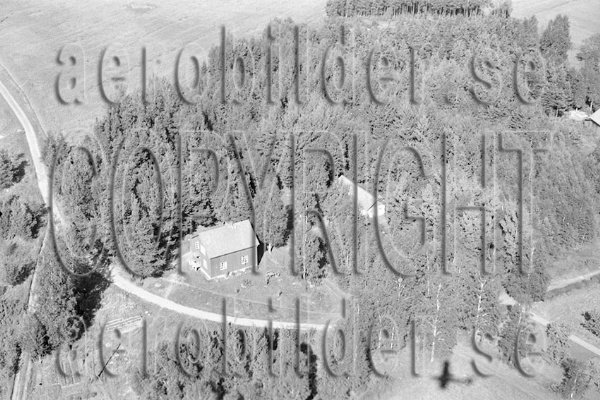 aerobilder.se
COPYRIGHT
©aerobilder.se